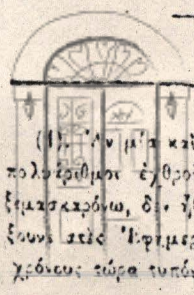 (1). Ἂν μ' α κα
πολυάριθμοι ἐχθρο
ξεμασκαρόνω, δὲν
ξουνε στὲς Ἐφημερ
χρόνους τώρα τυπόν